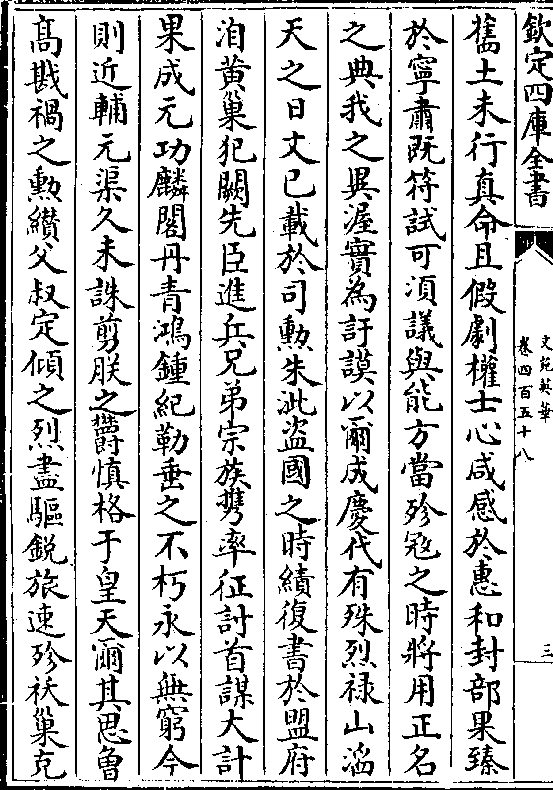 欽定四庫全書
文苑英華
卷四百五十八
三
舊土未行真命且假劇權士心咸感於惠和封部果臻
於寧肅既符試可湏議與能方當殄寇之時將用正名
之典我之異渥實為訏謨以爾成慶代有殊烈禄山滔
天之日丈已載於司勲朱泚盜國之時績復書於盟府
洎黄巢犯闕先臣進兵兄弟宗族携率征討首謀大計
果成元功麟閣丹青鴻鍾紀勒垂之不朽永以無窮今
則近輔元渠久未誅剪朕之欝慎格于皇天爾其思魯
髙戡禍之勲纘父叔定傾之烈盡驅鋭旅速殄祅巢克